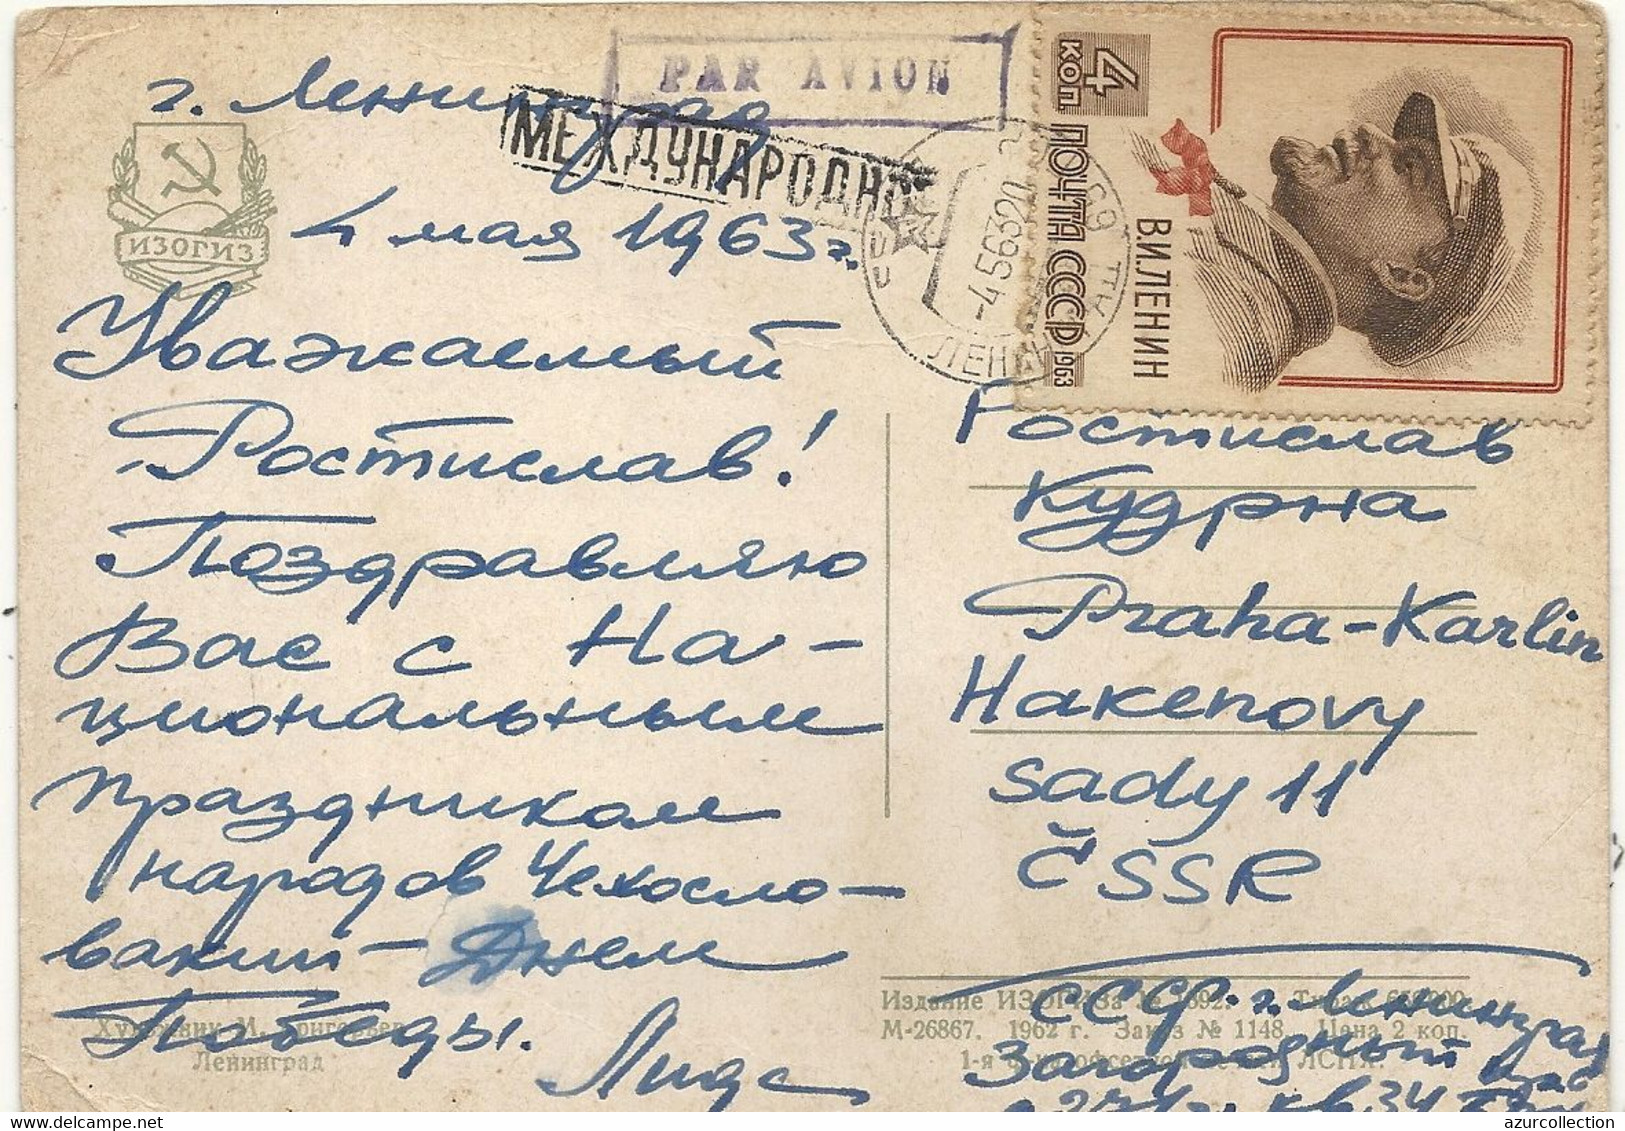 PAR AVION
г. Ленинград
МЕЖДУНАРОДНОЕ
4 мая 1963 г.
ИЗОГИЗ
4 КОП. ПОЧТА СССР 1963
В.И.ЛЕНИН
-4 5 63 20
ЛЕНИН
Уважаемый
Ростислав!
Поздравляю
Вас с На-
циональным
праздником
народов Чехосло-
вакии - Днем
Победы.
Лида
Ростислав
Кудрна
Praha-Karlin
Hakenovy
sady 11
ČSSR
СССР г. Ленинград
Загородный
кв 34
Художник И. Григорьев
Ленинград
Издание ИЗОГИЗа № Тираж
М-26867. 1962 г. Заказ № 1148. Цена 2 коп.
azurcollection